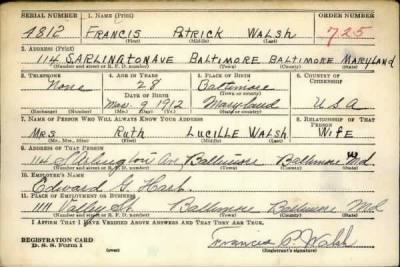 SERIAL NUMBER 1. NAME (Print) ORDER NUMBER
4812 FRANCIS PATRICK WALSH 725
(First) (Middle) (Last)
2. ADDRESS (Print)
114 S. ARLINGTON AVE BALTIMORE BALTIMORE MARYLAND
(Number and street or R. F. D. number) (Town) (County) (State)
3. TELEPHONE 4. AGE IN YEARS 5. PLACE OF BIRTH 6. COUNTRY OF CITIZENSHIP
None 28 Baltimore
DATE OF BIRTH (Town or county)
Nov. 9 1912 Maryland U S A
(Exchange) (No.) (Mo.) (Day) (Yr.) (State or country)
7. NAME OF PERSON WHO WILL ALWAYS KNOW YOUR ADDRESS 8. RELATIONSHIP OF THAT PERSON
Mrs Ruth Lucille Walsh Wife
(Mr., Mrs., Miss) (First) (Middle) (Last)
9. ADDRESS OF THAT PERSON
114 S Arlington Ave, Baltimore Baltimore Md
(Number and street or R. F. D. number) (Town) (County) (State)
10. EMPLOYER'S NAME
Edward G.
11. PLACE OF EMPLOYMENT OR BUSINESS
1111 Valley St Baltimore Baltimore Md
(Number and street or R. F. D. number) (Town) (County) (State)
I AFFIRM THAT I HAVE VERIFIED ABOVE ANSWERS AND THAT THEY ARE TRUE.
REGISTRATION CARD
D. S. S. Form 1
Francis P. Walsh
(Registrant's signature)